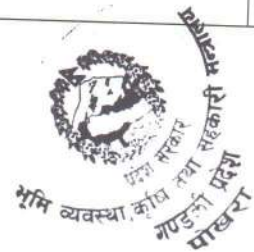 प्रदेश सरकार
भूमि व्यवस्था, कृषि तथा सहकारी मन्त्रालय
गण्डकी प्रदेश
पोखरा